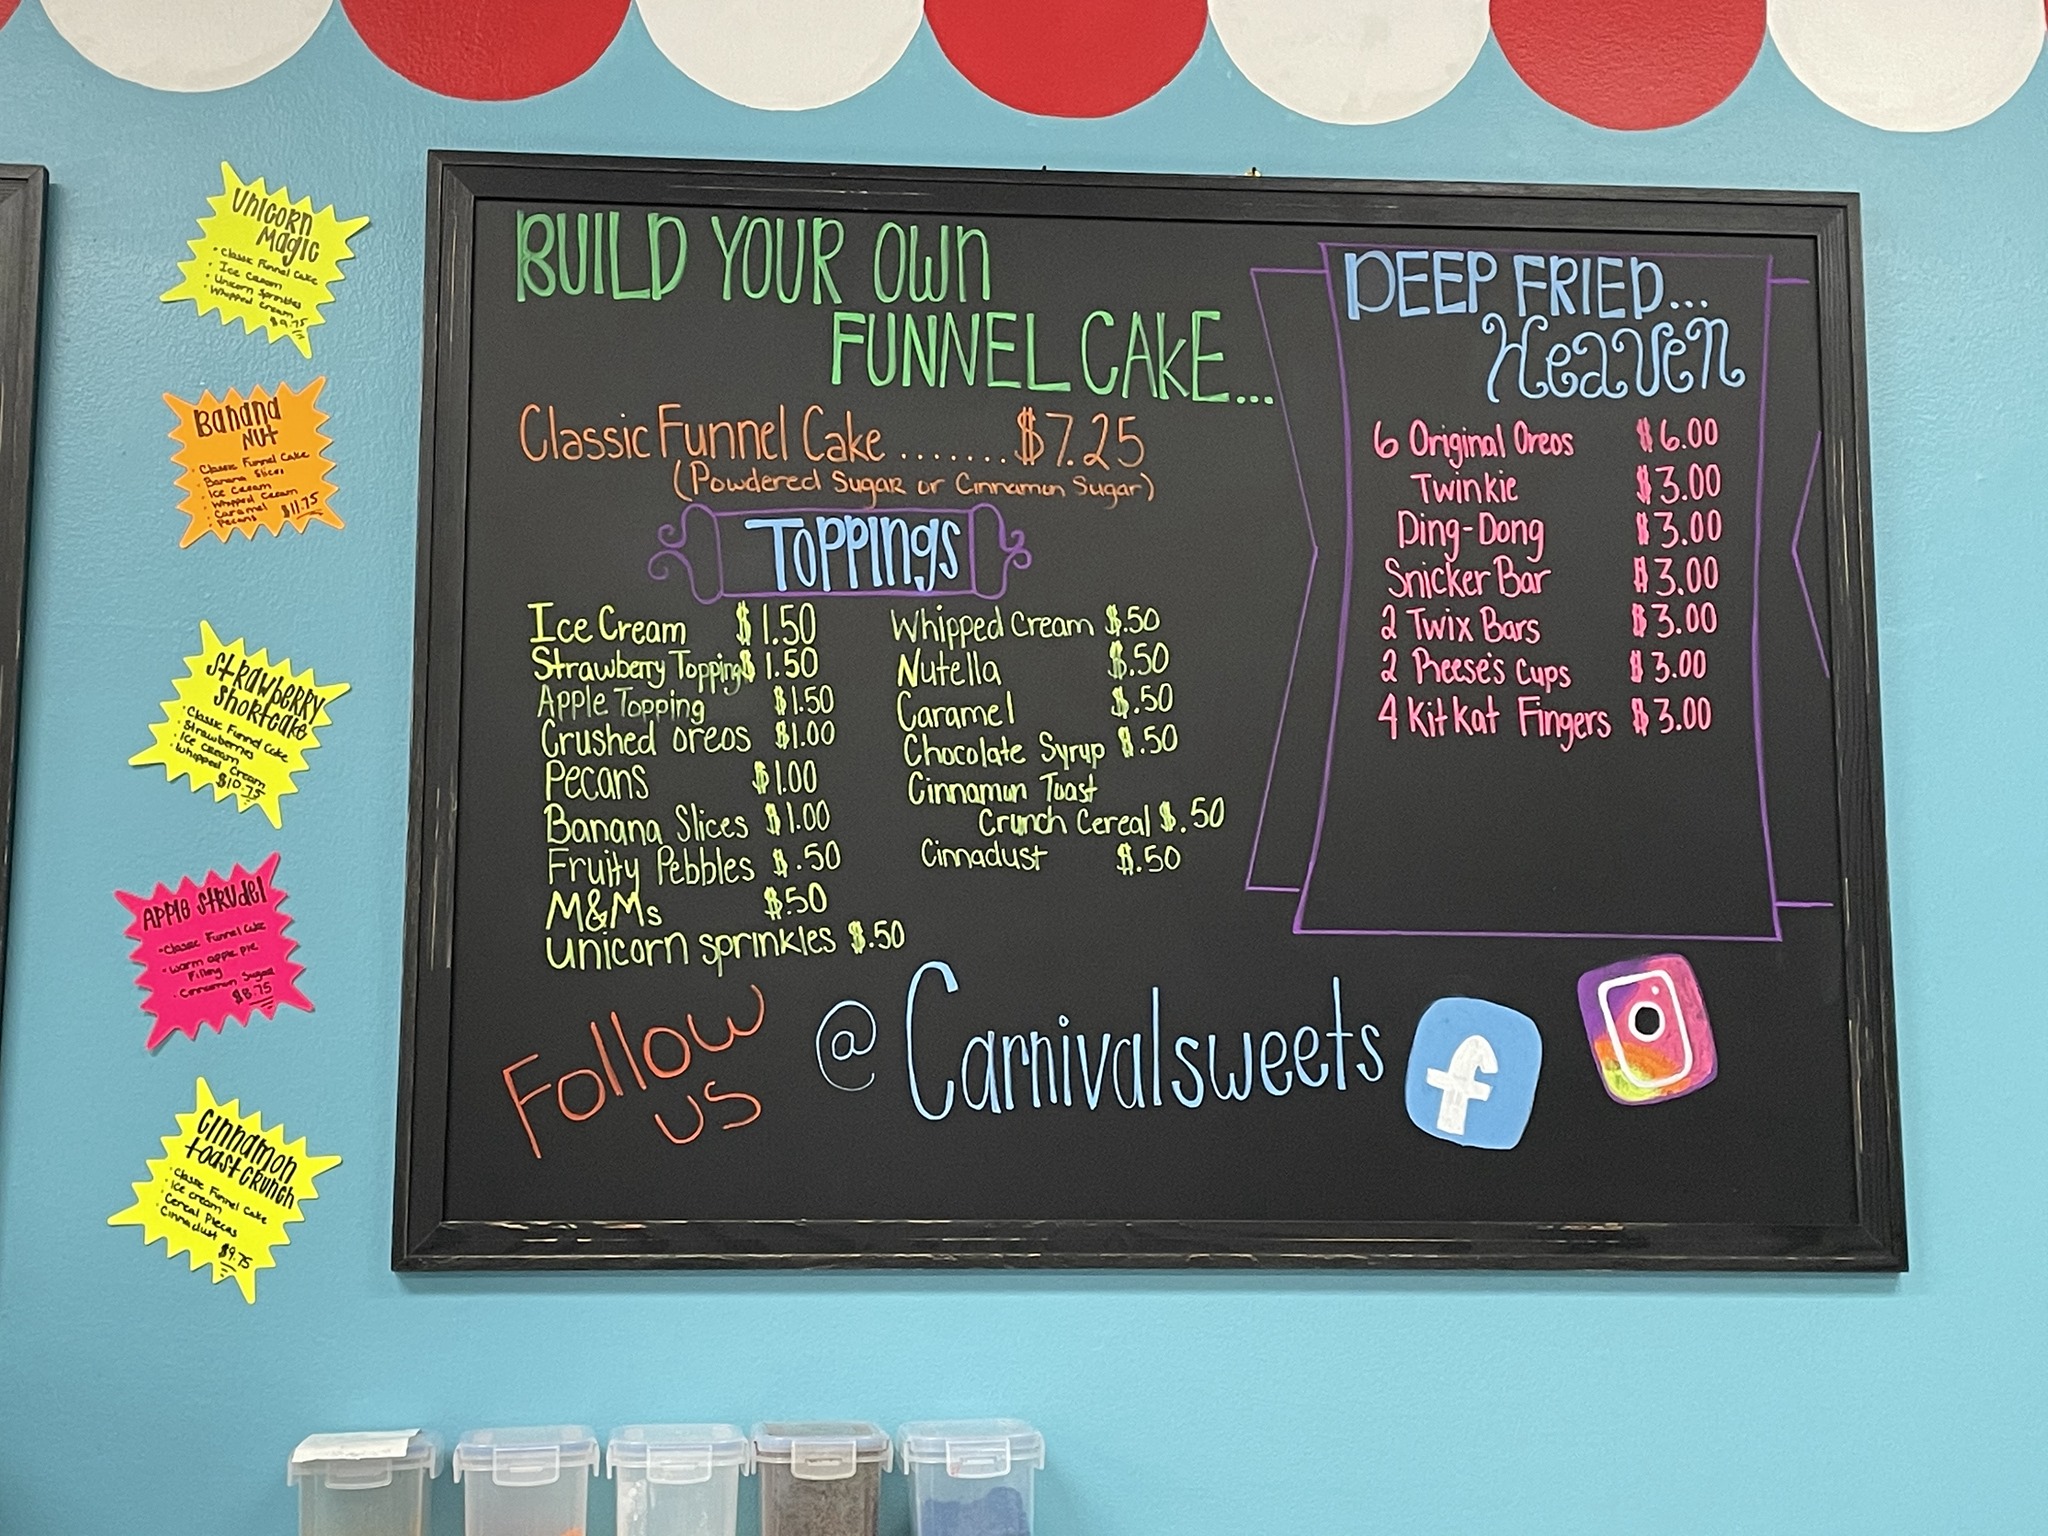 Unicorn
Magic
• Classic Funnel Cake
• Ice Cream
• Unicorn Sprinkles
• Whipped Cream
$9.75
Banana
Nut
• Classic Funnel Cake
• Banana Slices
• Ice Cream
• Whipped Cream
• Caramel
• Pecans $11.75
Strawberry
Shortcake
• Classic Funnel Cake
• Strawberries
• Ice Cream
• Whipped Cream
$10.75
Apple Strudel
• Classic Funnel Cake
• Warm apple pie
Filling
• Cinnamon Sugar
$8.75
Cinnamon
toast crunch
• Classic Funnel Cake
• Ice cream
• Cereal Pieces
• Cinnadust
$9.75
BUILD YOUR OWN
FUNNEL CAKE...
Classic Funnel Cake ....... $7.25
(Powdered Sugar or Cinnamon Sugar)
Toppings
Ice Cream $1.50
Strawberry Topping $1.50
Apple Topping $1.50
Crushed Oreos $1.00
Pecans $1.00
Banana Slices $1.00
Fruity Pebbles $.50
M&Ms $.50
Unicorn sprinkles $.50
Whipped Cream $.50
Nutella $.50
Caramel $.50
Chocolate Syrup $.50
Cinnamon Toast
Crunch Cereal $.50
Cinnadust $.50
DEEP FRIED...
Heaven
6 Original Oreos $6.00
Twinkie $3.00
Ding-Dong $3.00
Snicker Bar $3.00
2 Twix Bars $3.00
2 Reese's Cups $3.00
4 Kit Kat Fingers $3.00
Follow
us
@Carnivalsweets
f